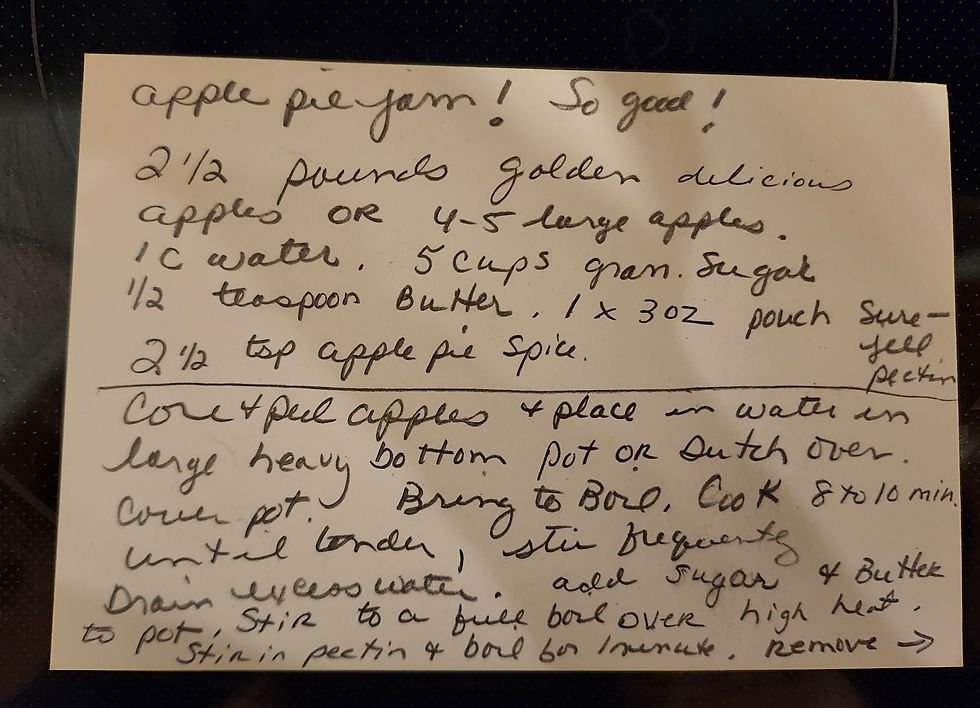 apple pie jam! So good!
2 1/2 pounds golden delicious
apples OR 4-5 large apples.
1 C water. 5 cups gran. Sugar
1/2 teaspoon Butter. 1 x 3oz pouch Sure-
Jell
pectin
2 1/2 tsp apple pie Spice.
Core + peel apples + place in water in
large heavy bottom pot OR Dutch Oven.
Cover pot. Bring to Boil. Cook 8 to 10 min.
until tender, stir frequently
Drain excess water. add Sugar & Butter
to pot. Stir to a full boil over high heat.
Stir in pectin & boil for 1 minute. Remove →